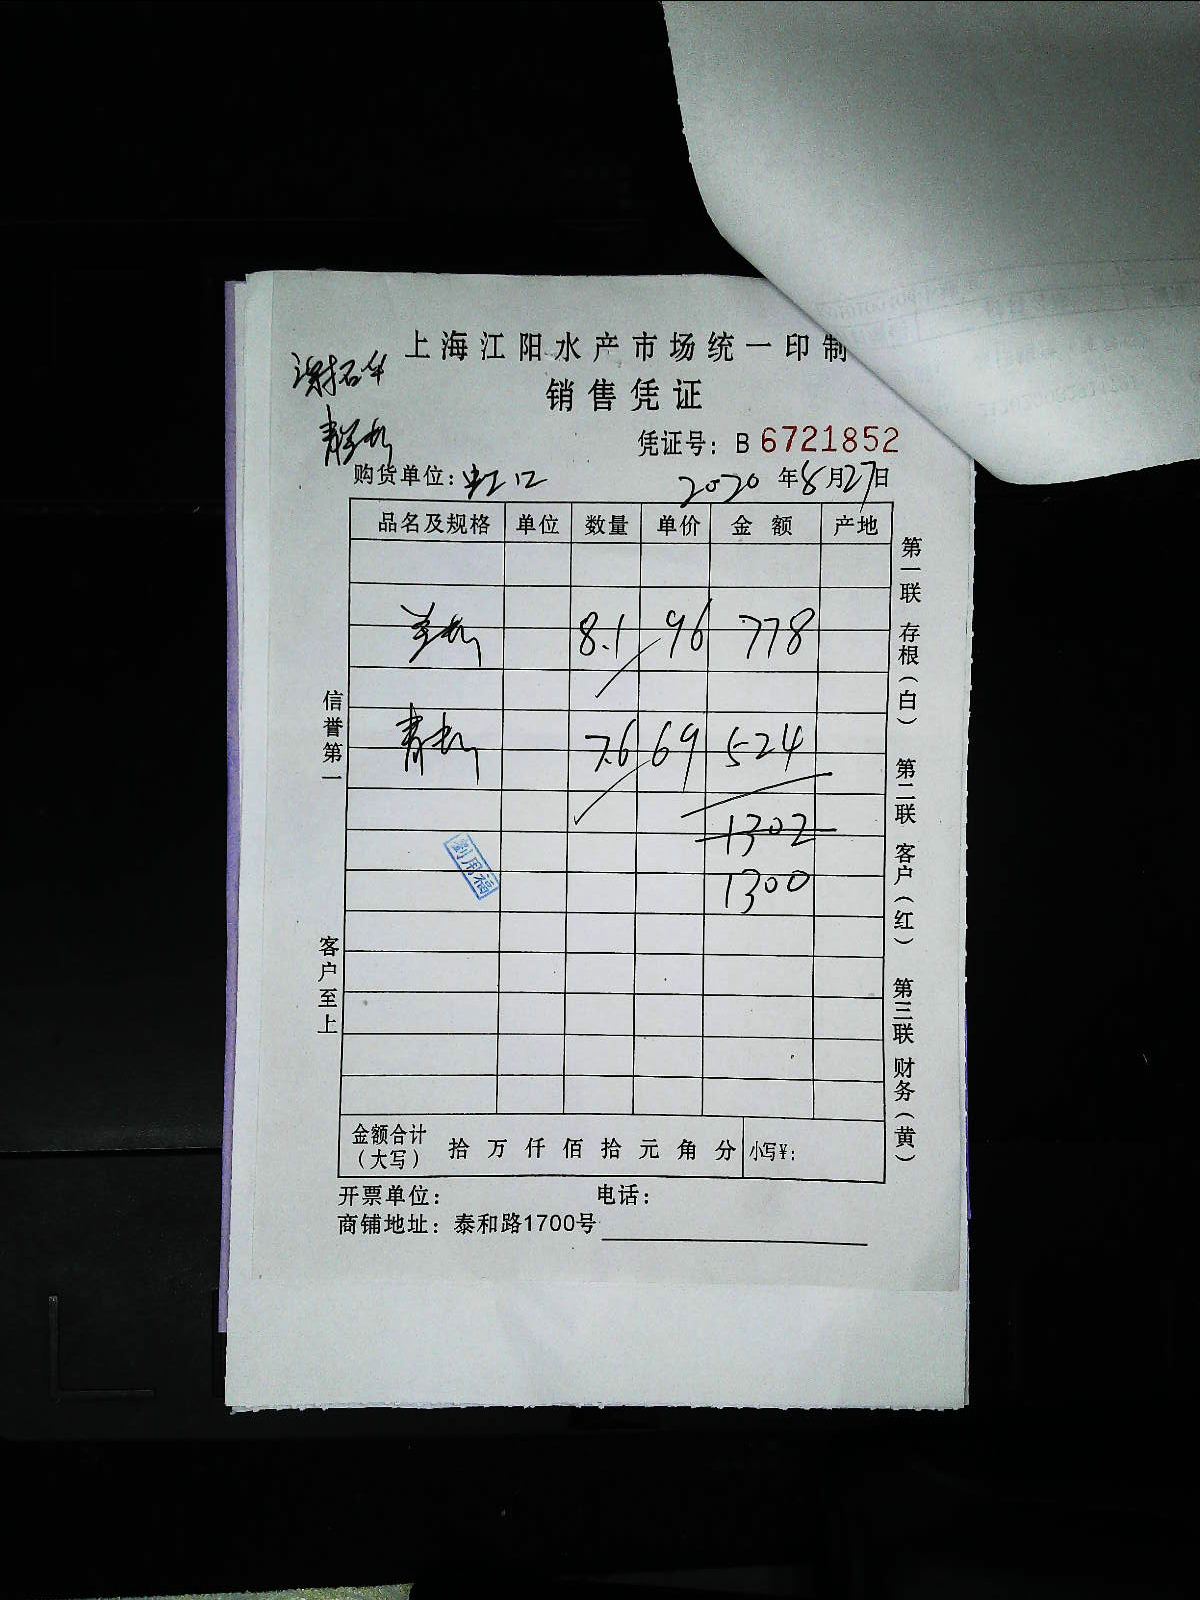 上海江阳水产市场统一印制
销售凭证
凭证号：B 6721852
购货单位：虹口 2020年8月27日
品名及规格 单位 数量 单价 金额 产地
8.1 96 778
青 7.6 69 524
1302
1300
劉用福
金额合计（大写） 拾 万 仟 佰 拾 元 角 分 小写¥：
开票单位： 电话：
商铺地址：泰和路1700号
信誉第一
客户至上
第一联 存根（白） 第二联 客户（红） 第三联 财务（黄）